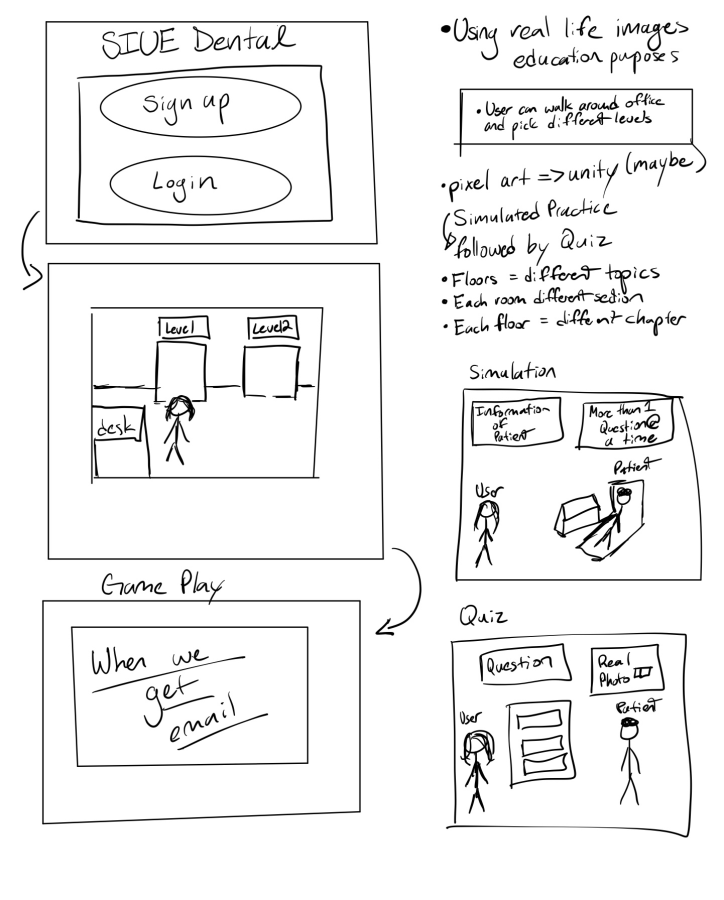 SIUE Dental
Sign up
Login
Level
Level2
desk
Game Play
When we
get
email
• Using real life images
education puposes
• User can walk around office
and pick different levels
• pixel art => unity (maybe)
Simulated Practice
followed by Quiz
• Floors = different topics
• Each room different section
• Each floor = different chapter
Simulation
Information
of
Patient
More than 1
Question @
a time
Patient
User
Quiz
Question
Real
Photo
Patient
User